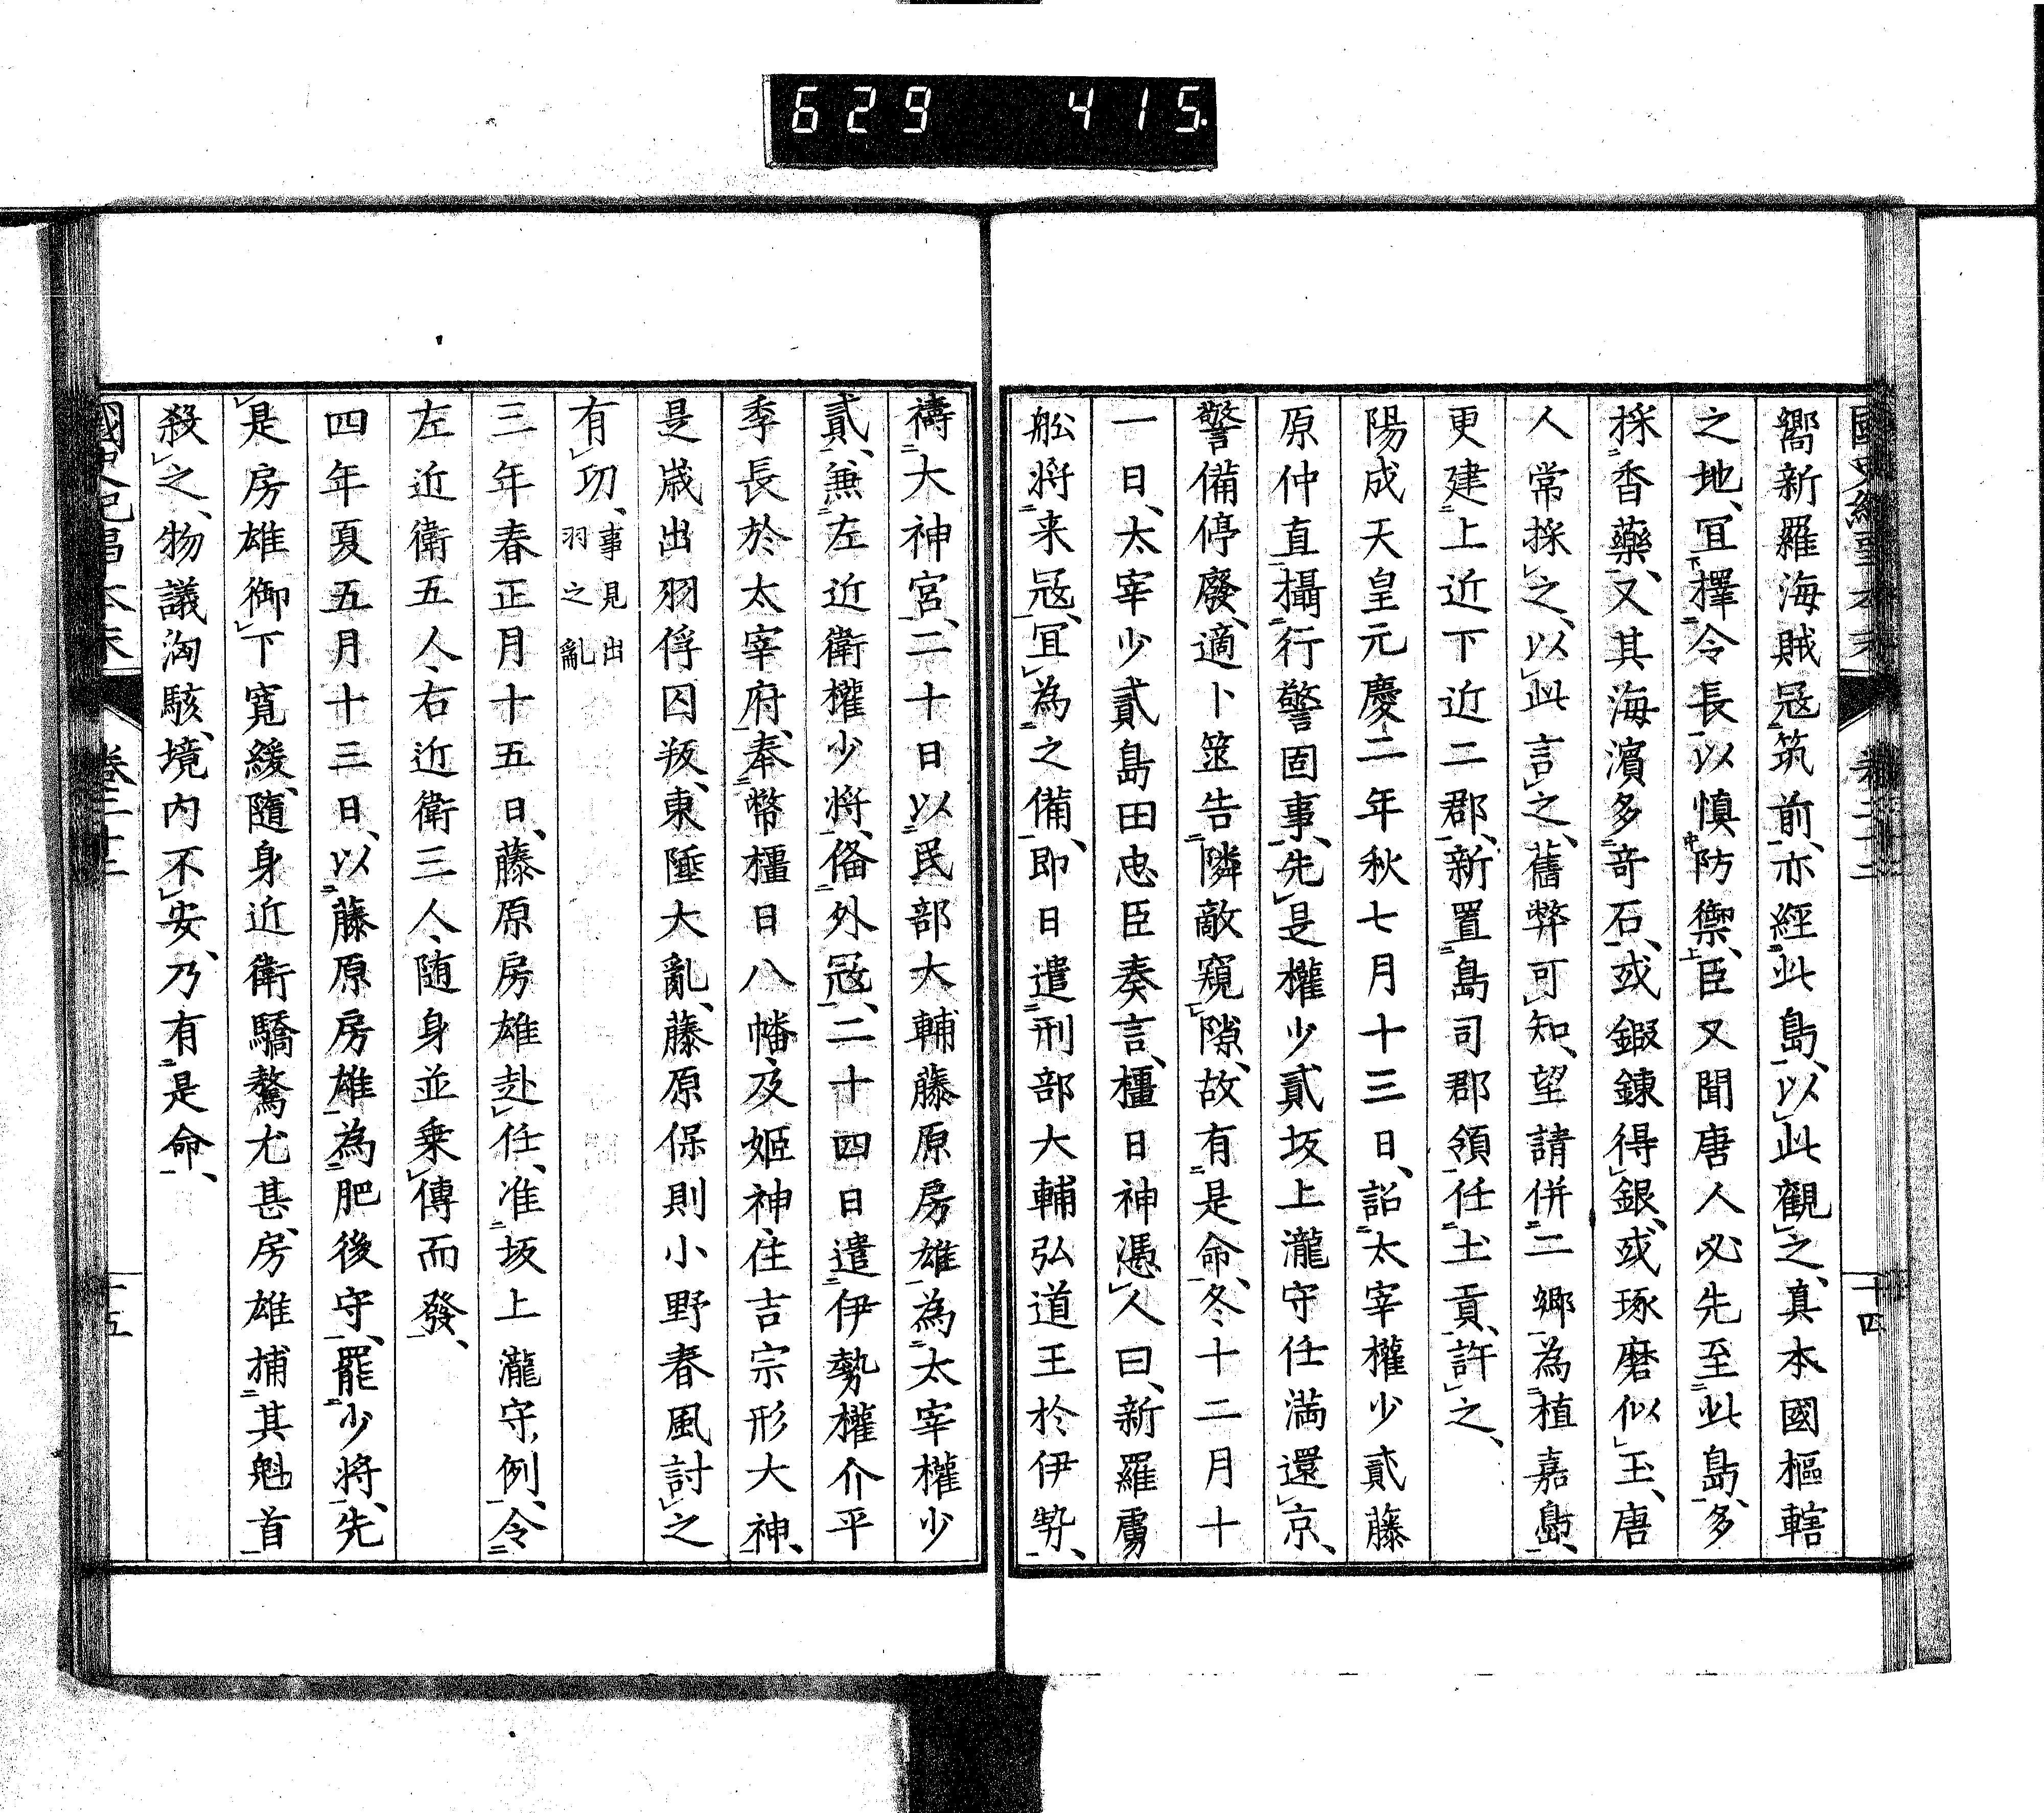 629 415
國史紀事本末 卷二十二 十四
嚮新羅海賊冦筑前、亦經此島、以此觀之、真本國樞轄
之地、冝擇令長以慎防禦、臣又聞唐人必先至此島、多
採香藥、又其海濱多竒石、或鍜錬得銀、或琢磨似玉、唐
人常採之、以此言之、舊弊可知、望請併二郷為植嘉島、
更建上近下近二郡、新置島司郡領、任土貢、許之、
陽成天皇元慶二年秋七月十三日、詔太宰權少貳藤
原仲直攝行警固事、先是權少貳坂上瀧守任満還京、
警備停廢、適卜筮告隣敵窺隙、故有是命、冬十二月十
一日、太宰少貳島田忠臣奏言、橿日神憑人曰、新羅虜
舩将来冦、冝為之備、即日遣刑部大輔弘道王於伊勢、
禱大神宮、二十日以民部大輔藤原房雄為太宰權少
貳、兼左近衛權少将、俻外冦、二十四日遣伊勢權介平
季長於太宰府、奉幣橿日八幡及姫神住吉宗形大神、
是歳出羽俘囚叛、東陲大亂、藤原保則小野春風討之
有功、事見出羽之亂
三年春正月十五日、藤原房雄赴任、准坂上瀧守例、令
左近衛五人、右近衛三人、随身並乗傳而發、
四年夏五月十三日、以藤原房雄為肥後守、罷少将、先
是房雄御下寛緩、隨身近衛驕驁尤甚、房雄捕其魁首
殺之、物議洶駭、境内不安、乃有是命、
國史紀事本末 卷二十二 十五